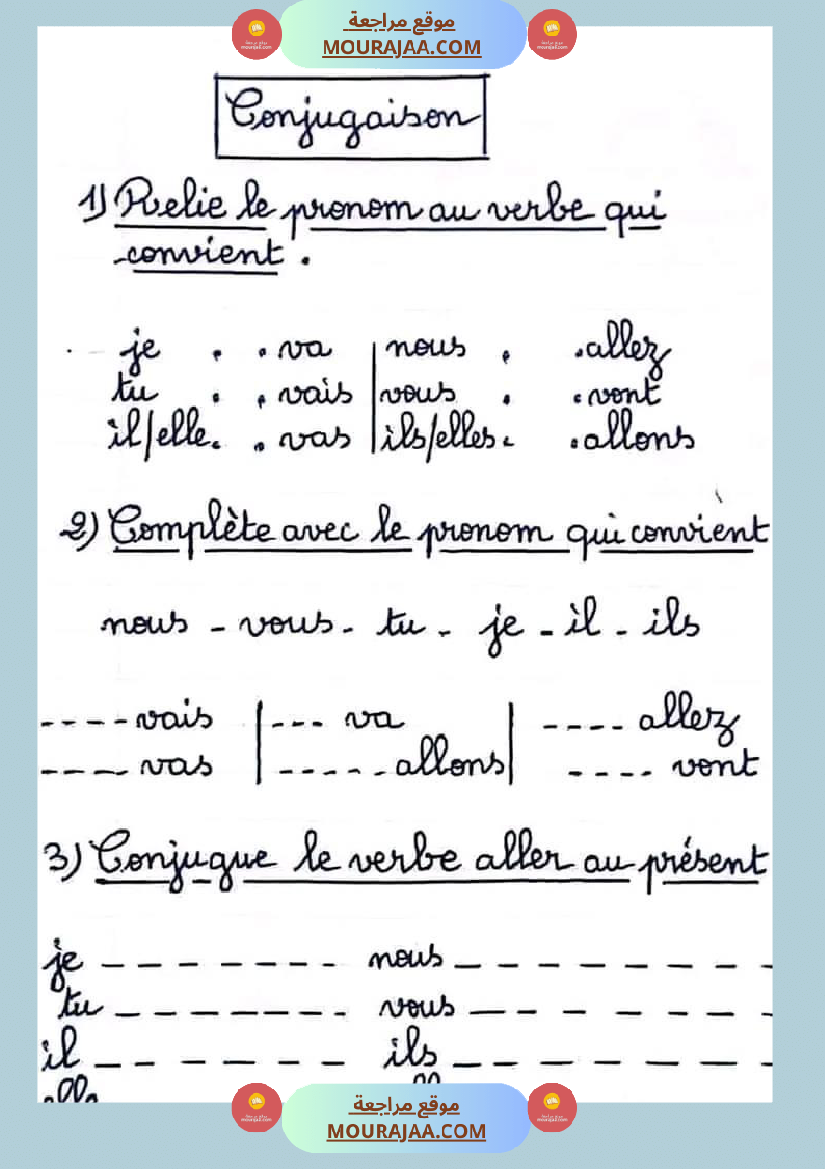 موقع مراجعة
MOURAJAA.COM
Conjugaison
1) Relie le pronom au verbe qui
convient.
je . . va | nous . . allez
tu . . vais | vous . . vont
il/elle. . vas | ils/elles. . allons
2) Complète avec le pronom qui convient
nous - vous - tu - je - il - ils
---- vais | --- va | ---- allez
---- vas | ----- allons | ---- vont
3) Conjugue le verbe aller au présent
je -------- nous ---------
tu -------- vous --------
il ------- ils ---------
موقع مراجعة
MOURAJAA.COM